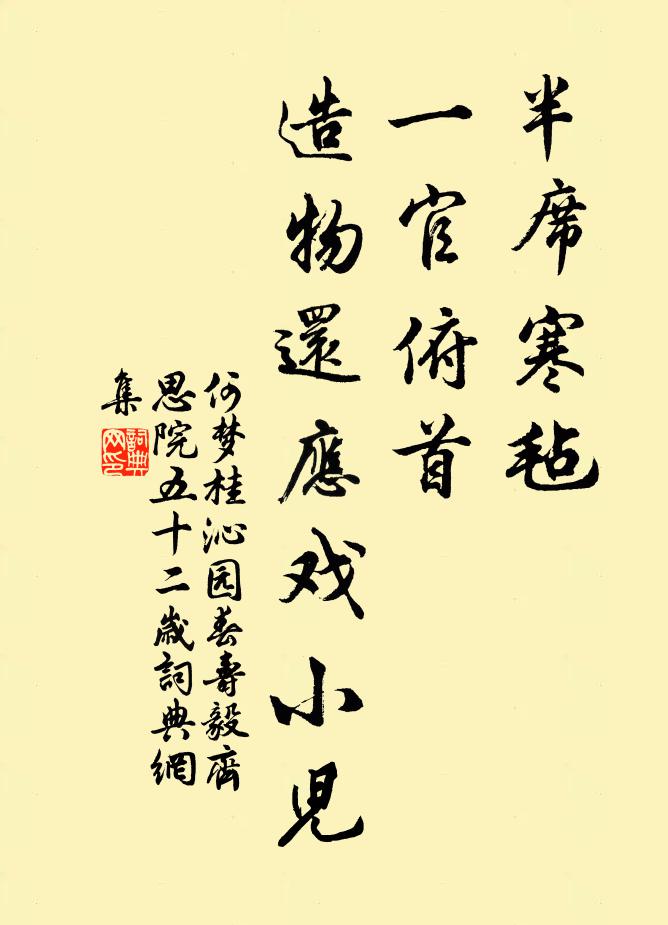 半席寒毡
一官俯首
造物還應戏小児
何梦桂沁园春壽毅齊
思院五十二歲詞典網
集
詞典
网印